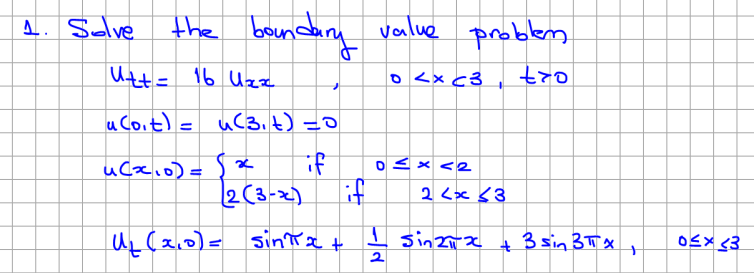 1. Solve the boundary value problem
Utt = 16 Uxx , 0 < x < 3 , t > 0
u(0,t) = u(3,t) = 0
u(x,0) = { x if 0 ≤ x < 2
2(3-x) if 2 < x ≤ 3
Ut (x,0) = sinπx + 1/2 sin2πx + 3 sin3πx , 0 ≤ x ≤ 3